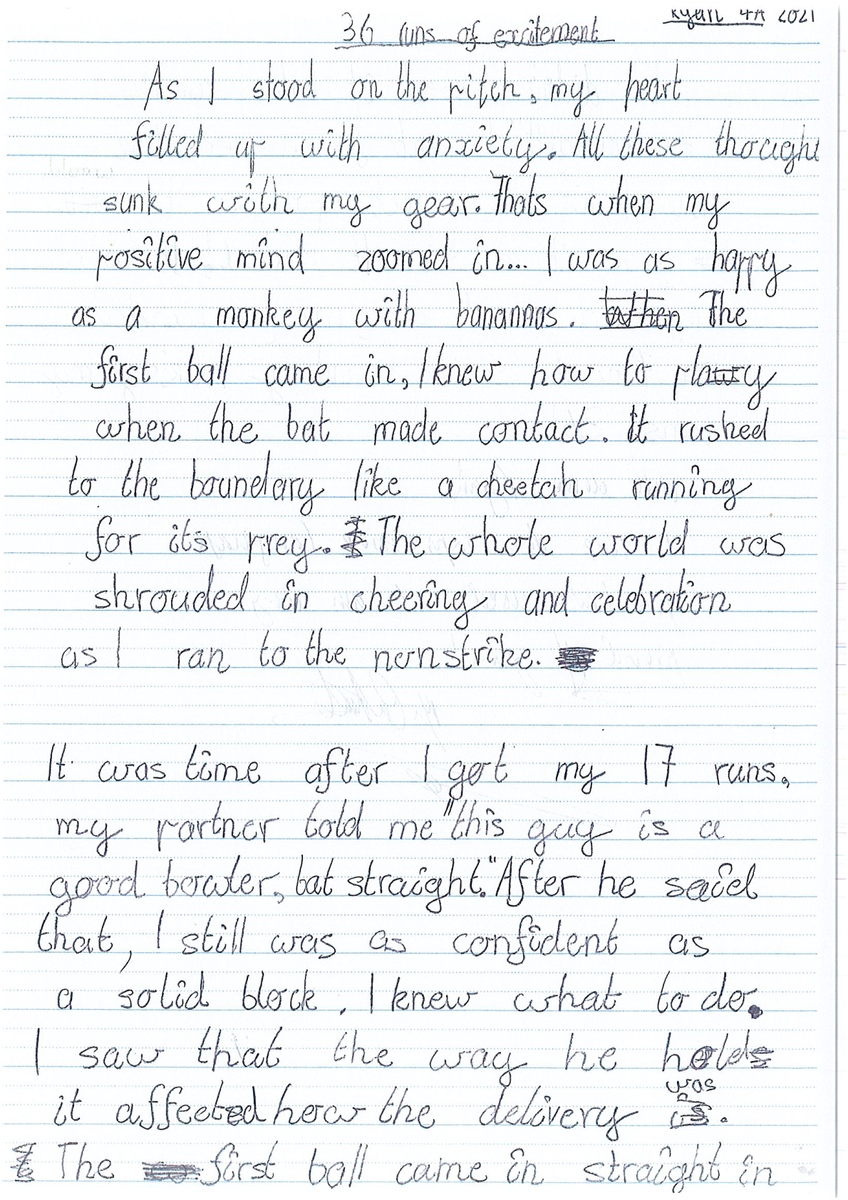 Ryan 4A 2021
36 runs of excitement
As I stood on the pitch, my heart
filled up with anxiety. All these thought
sunk with my gear. Thats when my
positive mind zoomed in... I was as happy
as a monkey with banannas. The
first ball came in, I knew how to play
when the bat made contact. It rushed
to the boundary like a cheetah running
for its prey. The whole world was
shrouded in cheering and celebration
as I ran to the nonstrike.
It was time after I got my 17 runs,
my partner told me "this guy is a
good bowler, bat straight." After he said
that, I still was as confident as
a solid block. I knew what to do.
I saw that the way he held
it affected how the delivery was.
The first ball came in straight in